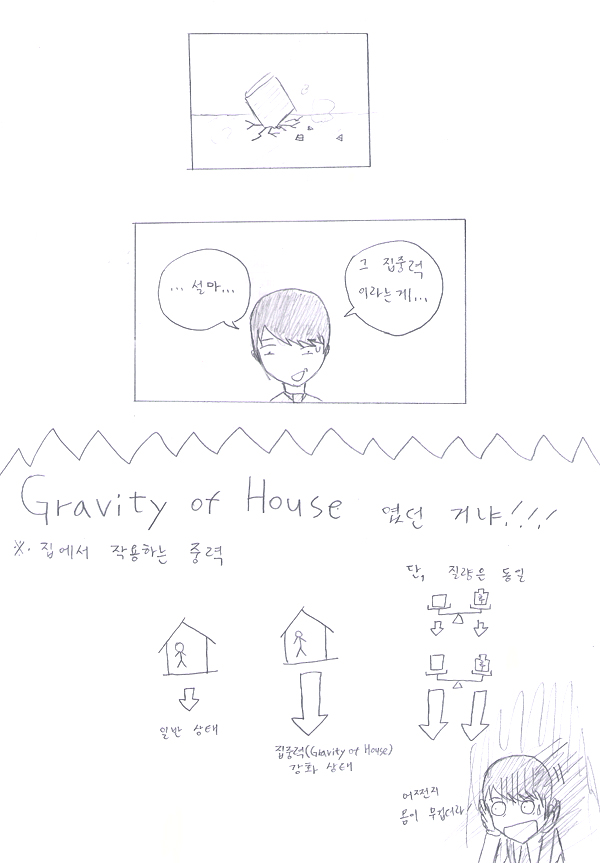 ... 설마...
그 집중력
이라는게...
Gravity of House 였던 거냐!!!!
※. 집에서 작용하는 중력
단, 질량은 동일
일반 상태
집중력(Gravity of House)
강화 상태
어쩐지
몸이 무겁더라